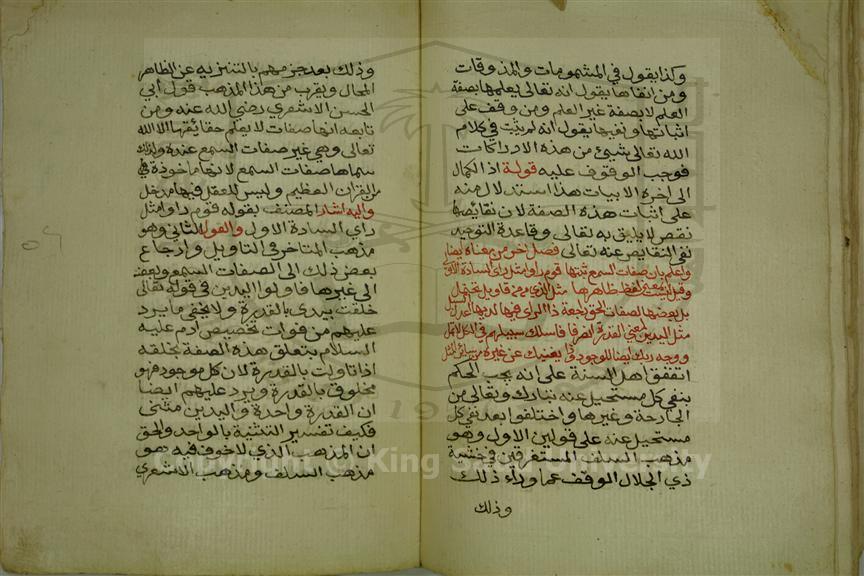 وكذا يقول في المشمومات والمذوقات
ومن انقاها يقول انه تعالى يعلمها بصفة
العلم لا بصفة غير العلم ومن وقف على
اثباتها ونفيها يقول انه لم يثبت في كلام
الله تعالى شيئ من هذه الادراكات
فوجب الوقوف عليه قوله اذ الكمال
الى اخره الابيات هذا استدلال منه
على اثبات هذه الصفة لان نقائصها
نقص لا يليق به تعالى وقاعدة التوحيد
نفي النقايص عنه تعالى فصل اخر من معناه ايضا
واعلم بان صفات السمع ثبتها قوم راو امثل راى السادة الاول
وقيل ليست بمعنى لفظ ظاهرها مثل الذي
بل بعضها لصفات الحق رجعة ذا الراى
مثل اليدين بمعنى القدرة فاسلك سبيلهم في
ووجه ربك ايضا للوجود يغنيك عن غيره من سائر المثل
اتفقق اهل السنة على انه يجب الحكم
بنفي كل مستحيل عنه تبارك وتعالى من
الجارحة وغيرها واختلفوا بعد نفي كل
مستحيل عنه على قولين الاول وهو
مذهب السلف المستغرقين في خشية
ذي الجلال الموقف عما وراء ذلك
وذلك
وذلك بعد جزمهم بالتنزيه عن الظاهر
المحال ويقرب من هذا المذهب قول ابي
الحسن الاشعري رضي الله عنه ومن
تابعه انها صفات لا يعلم حقائقها الا الله
تعالى وهي غير صفات السمع عنده ولذلك
سماها صفات السمع لانها ماخوذة في
من القران العظيم وليس للعقل فيها مدخل
واليه اشار المصنف بقوله قوم راو امثل
راي السادة الاول والقول الثاني وهو
مذهب المتاخر في التاويل وارجاع
بعض ذلك الى الصفات السبع وبعض
الى غيرها فاولوا اليدين في قوله تعالى
خلقت بيدي بالقدرة ولا يخفى ما يرد
عليهم من فوات تخصيص ادم عليه
السلام بتعلق هذه الصفة بخلقه
اذا تاولت بالقدرة لان كل موجود فهو
مخلوق بالقدرة ويرد عليهم ايضا
ان القدرة واحدة واليدين مثنى
فكيف تفسير التثنية بالواحد والحق
ان المذهب الذي لا خوف فيه هو
مذهب السلف ومذهب الاشعري
King Saud University